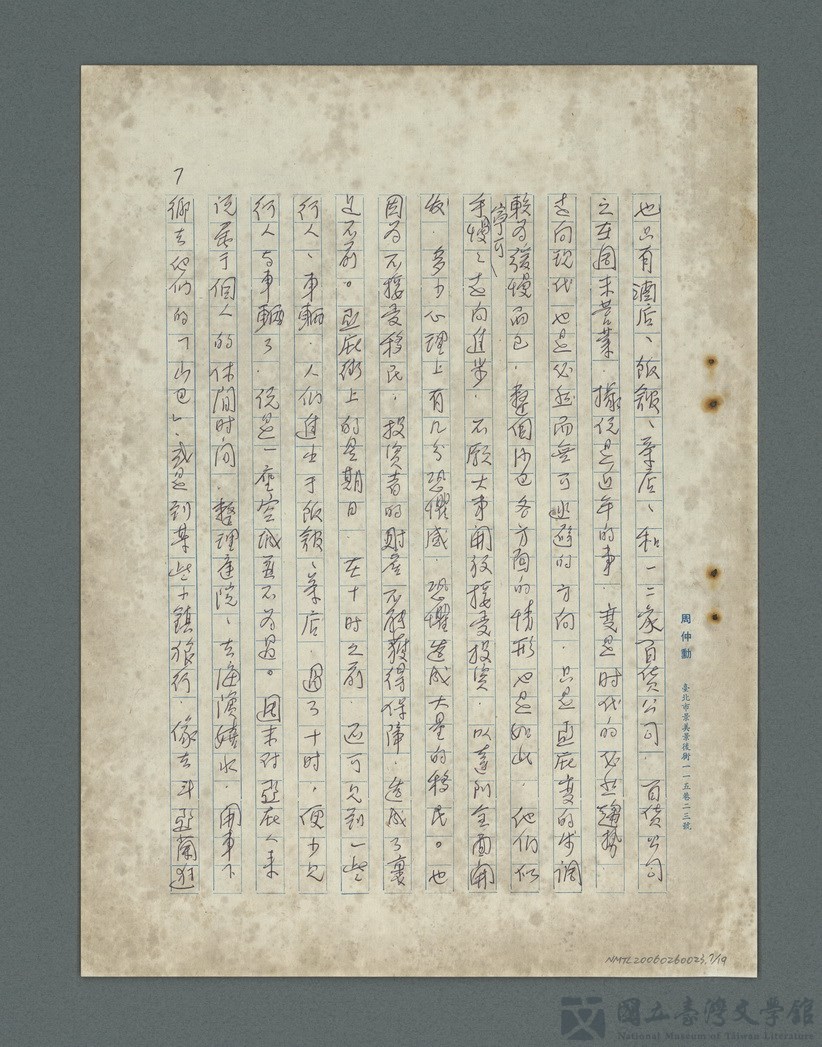 周仲勳 臺北市景美景後街一一五巷二三號
也只有酒店、飯館、茶店、和一二家百貨公司．百貨公司
之在週末營業．據說是近年的事．變是时代的必然趨勢．
走向現代也是必然而無可避的方向．只是亞庇變的步調
較為緩慢而已．整個沙巴各方面的情形也是如此．他们似
寧可
手慢々走向進步．不願大事開放接受投資．以達到全面開
放．多少心理上有几分恐懼感．恐懼造成大量的移民。也
因為不接受移民．投資者的財產不能獲得保障．造成了裹
足不前。亞庇街上的星期日．在十时之前．还可見到一些
行人、車輛．人们進出于飯館、茶店．過了十时，便少見
行人与車輛了．說是一座空城並不為過。週末对亞庇人来
說屬于個人的休閒时间．整理庭院、去海濱嬉水．開車下
鄉去他们的「山巴」、或是到某些小鎮旅行．像去斗亞蘭逛
7
NMTL20060260023,7/19
國立臺灣文學館
National Museum of Taiwan Literature